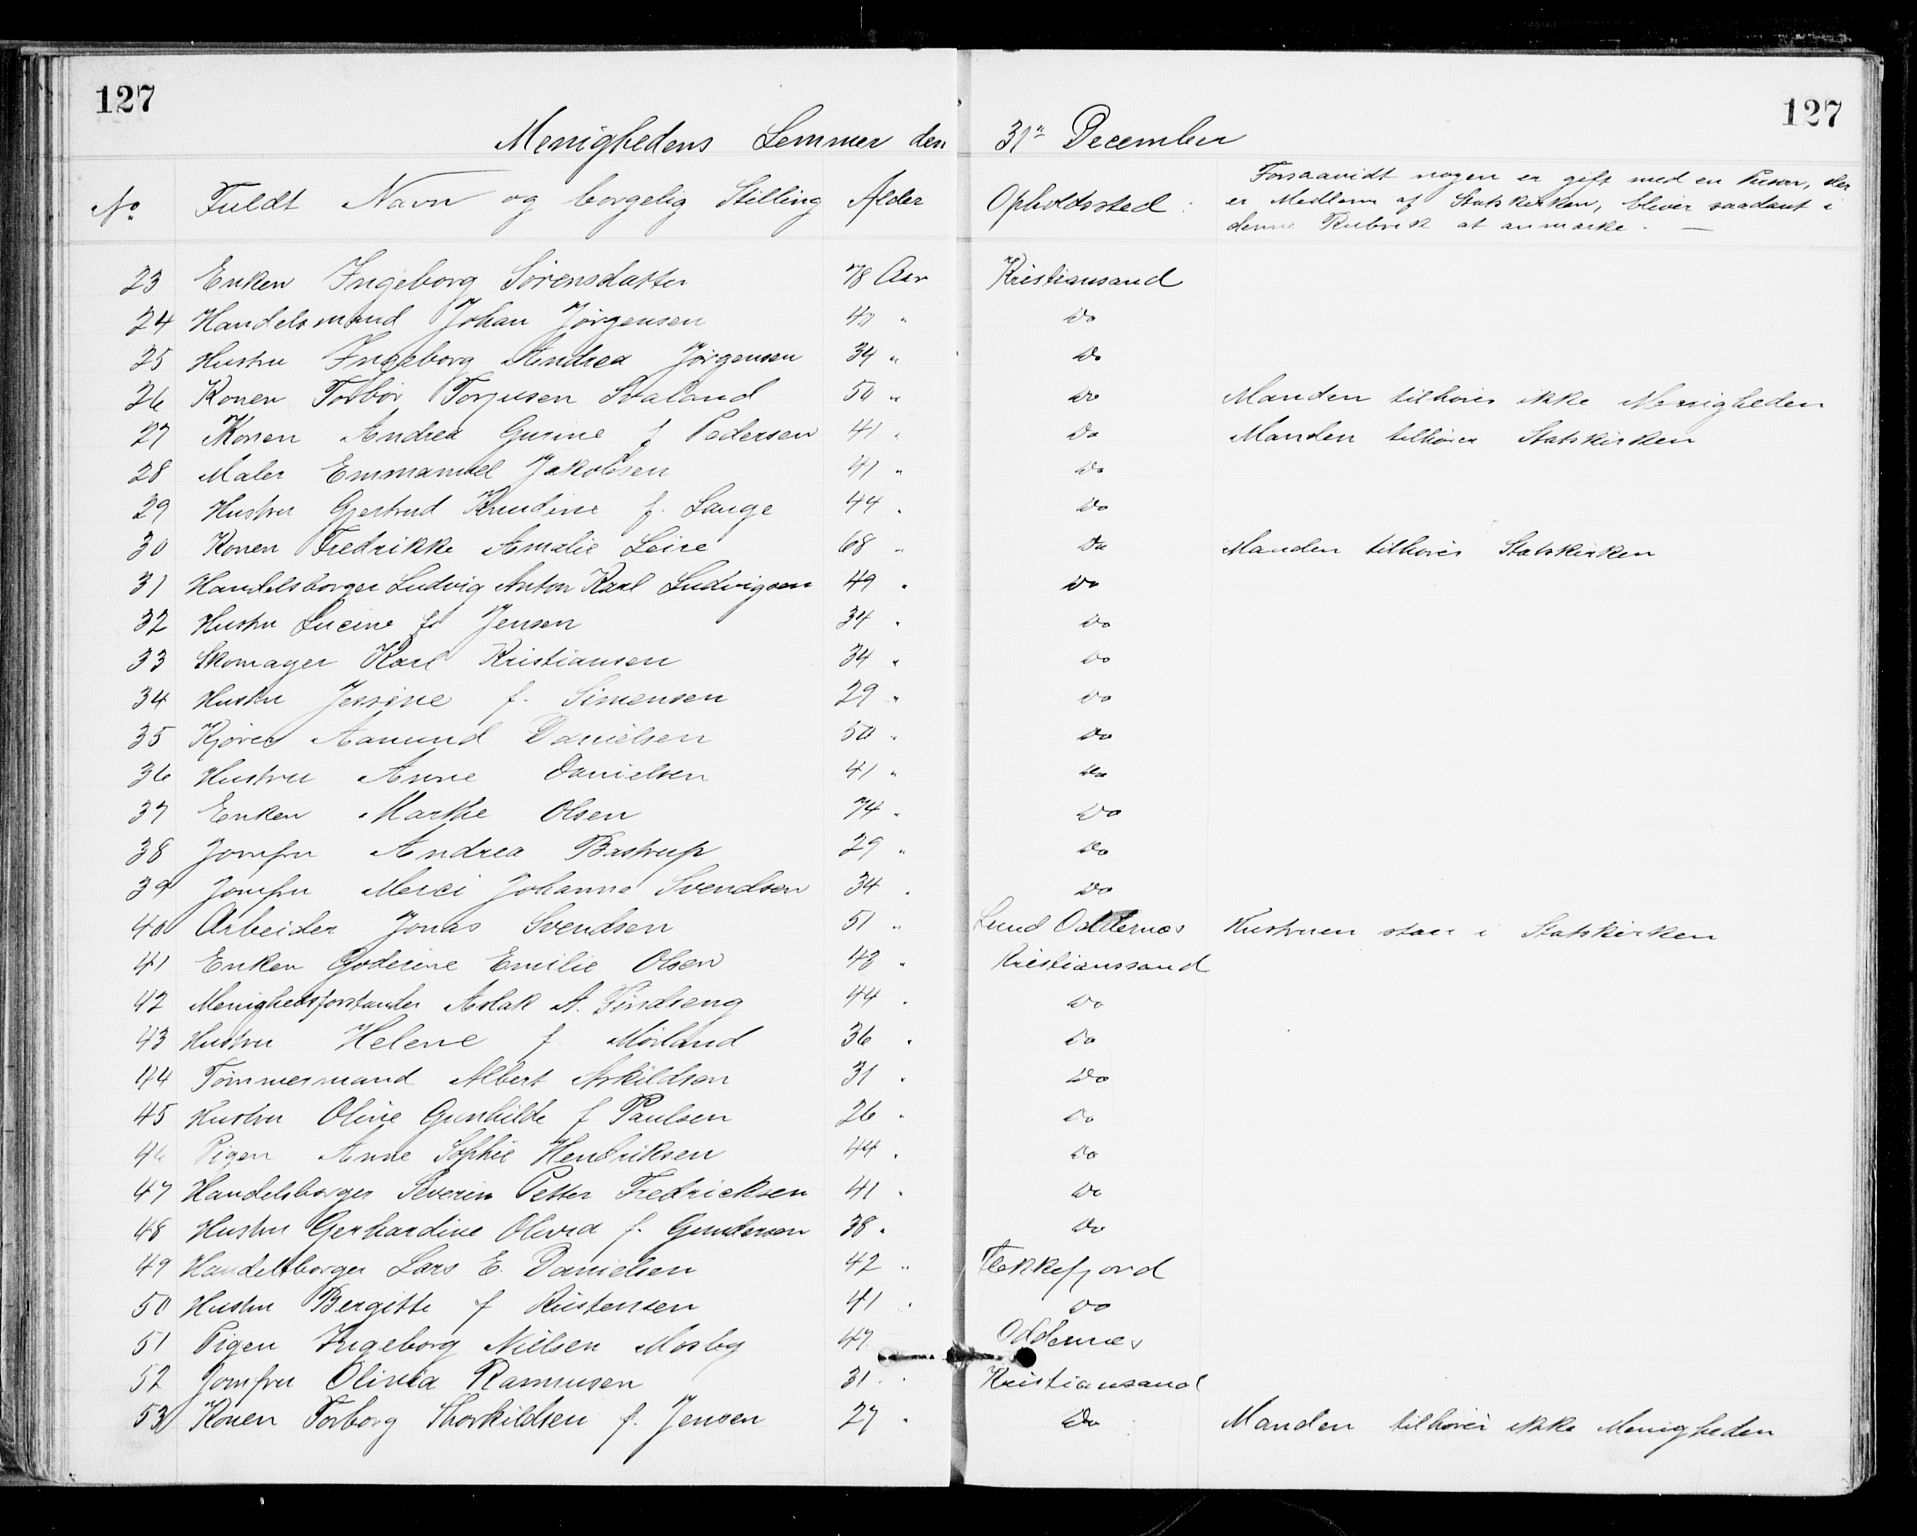 127 127
Menighedens Lemmer den 31te December
No Fuldt Navn og borgelig Stilling Alder Opholdssted: Forsaavidt nogen er gift med en Person, der
er Medlem af Statskirken, bliver saadant i
denne Rubrik at anmærke. —
23 Enken Ingeborg Sørensdatter 78 Aar Kristiansand
24 Handelsmand Johan Jørgensen 43 " Do
25 Hustru Ingeborg Andrea Jørgensen 34 " Do
26 Konen Torbor Torjusen Svaland 50 " Do Manden tilhører ikke Menigheden
27 Konen Andrea Gurine f Pedersen 41 " Do Manden tilhører Statskirken
28 Maler Emmanuel Jakobsen 41 " Do
29 Hustru Gjertrud Knudine f. Lange 44 " Do
30 Konen Fredrikke Amalie Leire 68 " Do Manden tilhører Statskirken
31 Handelsborger Ludvig Anton Karl Ludvigsen 49 " Do
32 Hustru Lucine f. Jensen 34 " Do
33 Skomager Karl Kristiansen 34 " Do
34 Hustru Jensine f. Simensen 29 " Do
35 Kjører Aanund Danielsen 50 " Do
36 Hustru Anne Danielsen 41 " Do
37 Enken Marthe Olsen 74 " Do
38 Jomfru Andrea Bastrup 29 " Do
39 Jomfru Merci Johanne Svendsen 34 " Do
40 Arbeider Jonas Svendsen 51 " Lund Oddernæs Hustruen staar i Statskirken
41 Enken Goderine Emilie Olsen 43 " Kristianssand
42 Menighedsforstander Aslak A. Findseng 44 " Do
43 Hustru Helene f. Mørland 36 " Do
44 Tømmermand Albert Askildsen 31 " Do
45 Hustru Oline Gunhilde f Paulsen 26 " Do
46 Pigen Anne Sophie Hendriksen 44 " Do
47 Handelsborger Severin Petter Fredricksen 41 " Do
48 Hustru Gerhardine Olivia f. Gundersen 38 " Do
49 Handelsborger Lars E. Danielsen 42 " Flekkefjord
50 Hustru Bergitte f Kristensen 41 " Do
51 Pigen Ingeborg Nielsen Mosby 47 Oddernæs
52 Jomfru Olivia Rasmusen 31 " Kristiansand
53 Konen Torborg Thorkildsen f. Jensen 27 " Do Manden tilhører ikke Menigheden